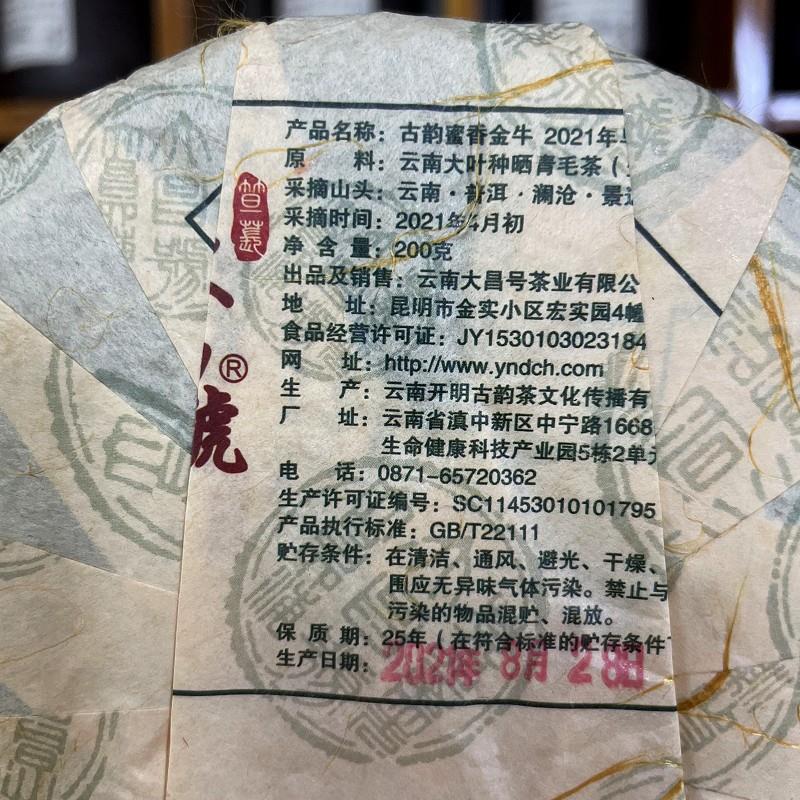 产品名称：古韵蜜香金牛 2021年
原 料：云南大叶种晒青毛茶（
采摘山头：云南·普洱·澜沧·景
采摘时间：2021年4月初
净 含 量：200克
出品及销售：云南大昌号茶业有限公
地 址：昆明市金实小区宏实园4幢
食品经营许可证：JY1530103023184
®
號
网 址：http://www.yndch.com
生 产：云南开明古韵茶文化传播有
厂 址：云南省滇中新区中宁路1668
生命健康科技产业园5栋2单元
电 话：0871-65720362
生产许可证编号：SC11453010101795
产品执行标准：GB/T22111
贮存条件：在清洁、通风、避光、干燥、
围应无异味气体污染。禁止与
污染的物品混贮、混放。
保 质 期：25年（在符合标准的贮存条件下
生产日期：2021年 8月 28日